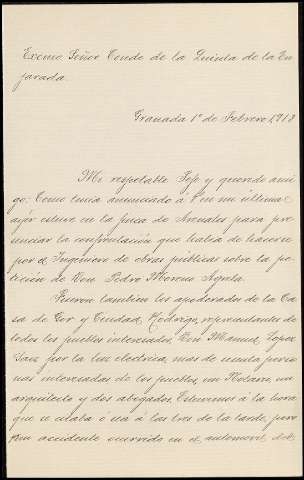 Excmo Señor Conde de la Quinta de la En
jarada.
Granada 1º de Febrero 1,913
Mi respetable Jefe y querido ami
go: Como tenia anunciado á V en mi última,
ayer estuve en la finca de Arenales para pre
senciar la confrontación que habia de hacerse
por el Ingeniero de obras públicas sobre la pe
tición de Don Pedro Moreno Agrela.
Fueron tambien los apoderados de la Ca
sa de Gor y Ciudad Rodrigo, representantes de
todos los pueblos interesados, Don Manuel Lopez
Saez por la luz electrica, mas de veinte perso
nas interesadas de los pueblos, un Notario, un
arquitecto y dos abogados. Estuvimos á la hora
que se citaba ó sea á las tres de la tarde, pero
un accidente ocurrido en el automovil, de